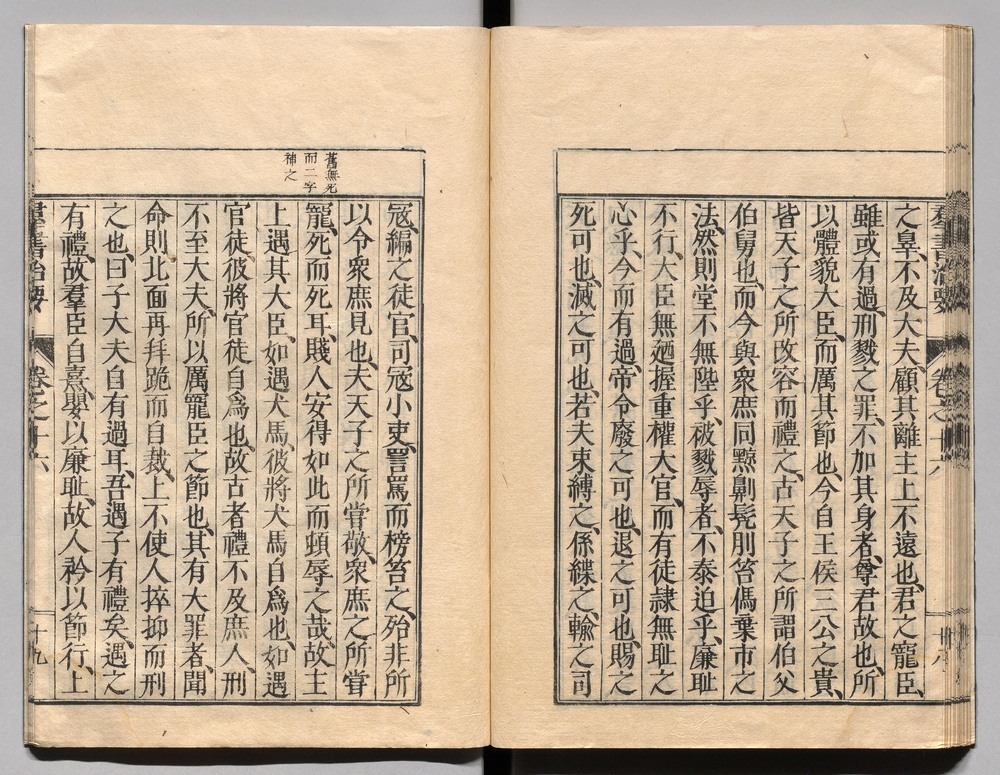 羣書治要 卷之十六 十八
之辠、不及大夫、顧其離主上不遠也、君之寵臣、
雖或有過、刑戮之罪、不加其身者、尊君故也、所
以體貌大臣、而厲其節也、今自王侯三公之貴、
皆天子之所改容而禮之、古天子之所謂伯父
伯舅也、而今與衆庶同黥劓髡刖笞傌棄市之
法、然則堂不無陛乎、被戮辱者、不泰迫乎、廉耻
不行、大臣無廼握重權大官、而有徒隷無耻之
心乎、今而有過、帝令廢之可也、退之可也、賜之
死可也、滅之可也、若夫束縛之、係緤之、輸之司
舊無死
而二字
補之
寇、編之徒官、司寇小吏、詈罵而榜笞之、殆非所
以令衆庶見也、夫天子之所甞敬、衆庶之所甞
寵、死而死耳、賤人安得如此而頓辱之哉、故主
上遇其大臣、如遇犬馬、彼將犬馬自爲也、如遇
官徒、彼將官徒自爲也、故古者禮不及庶人、刑
不至大夫、所以厲寵臣之節也、其有大罪者、聞
命則北面再拜跪而自裁、上不使人捽抑而刑
之也、曰子大夫自有過耳、吾遇子有禮矣、遇之
有禮、故羣臣自憙、嬰以廉耻、故人矜以節行、上
羣書治要 卷之十六 十九